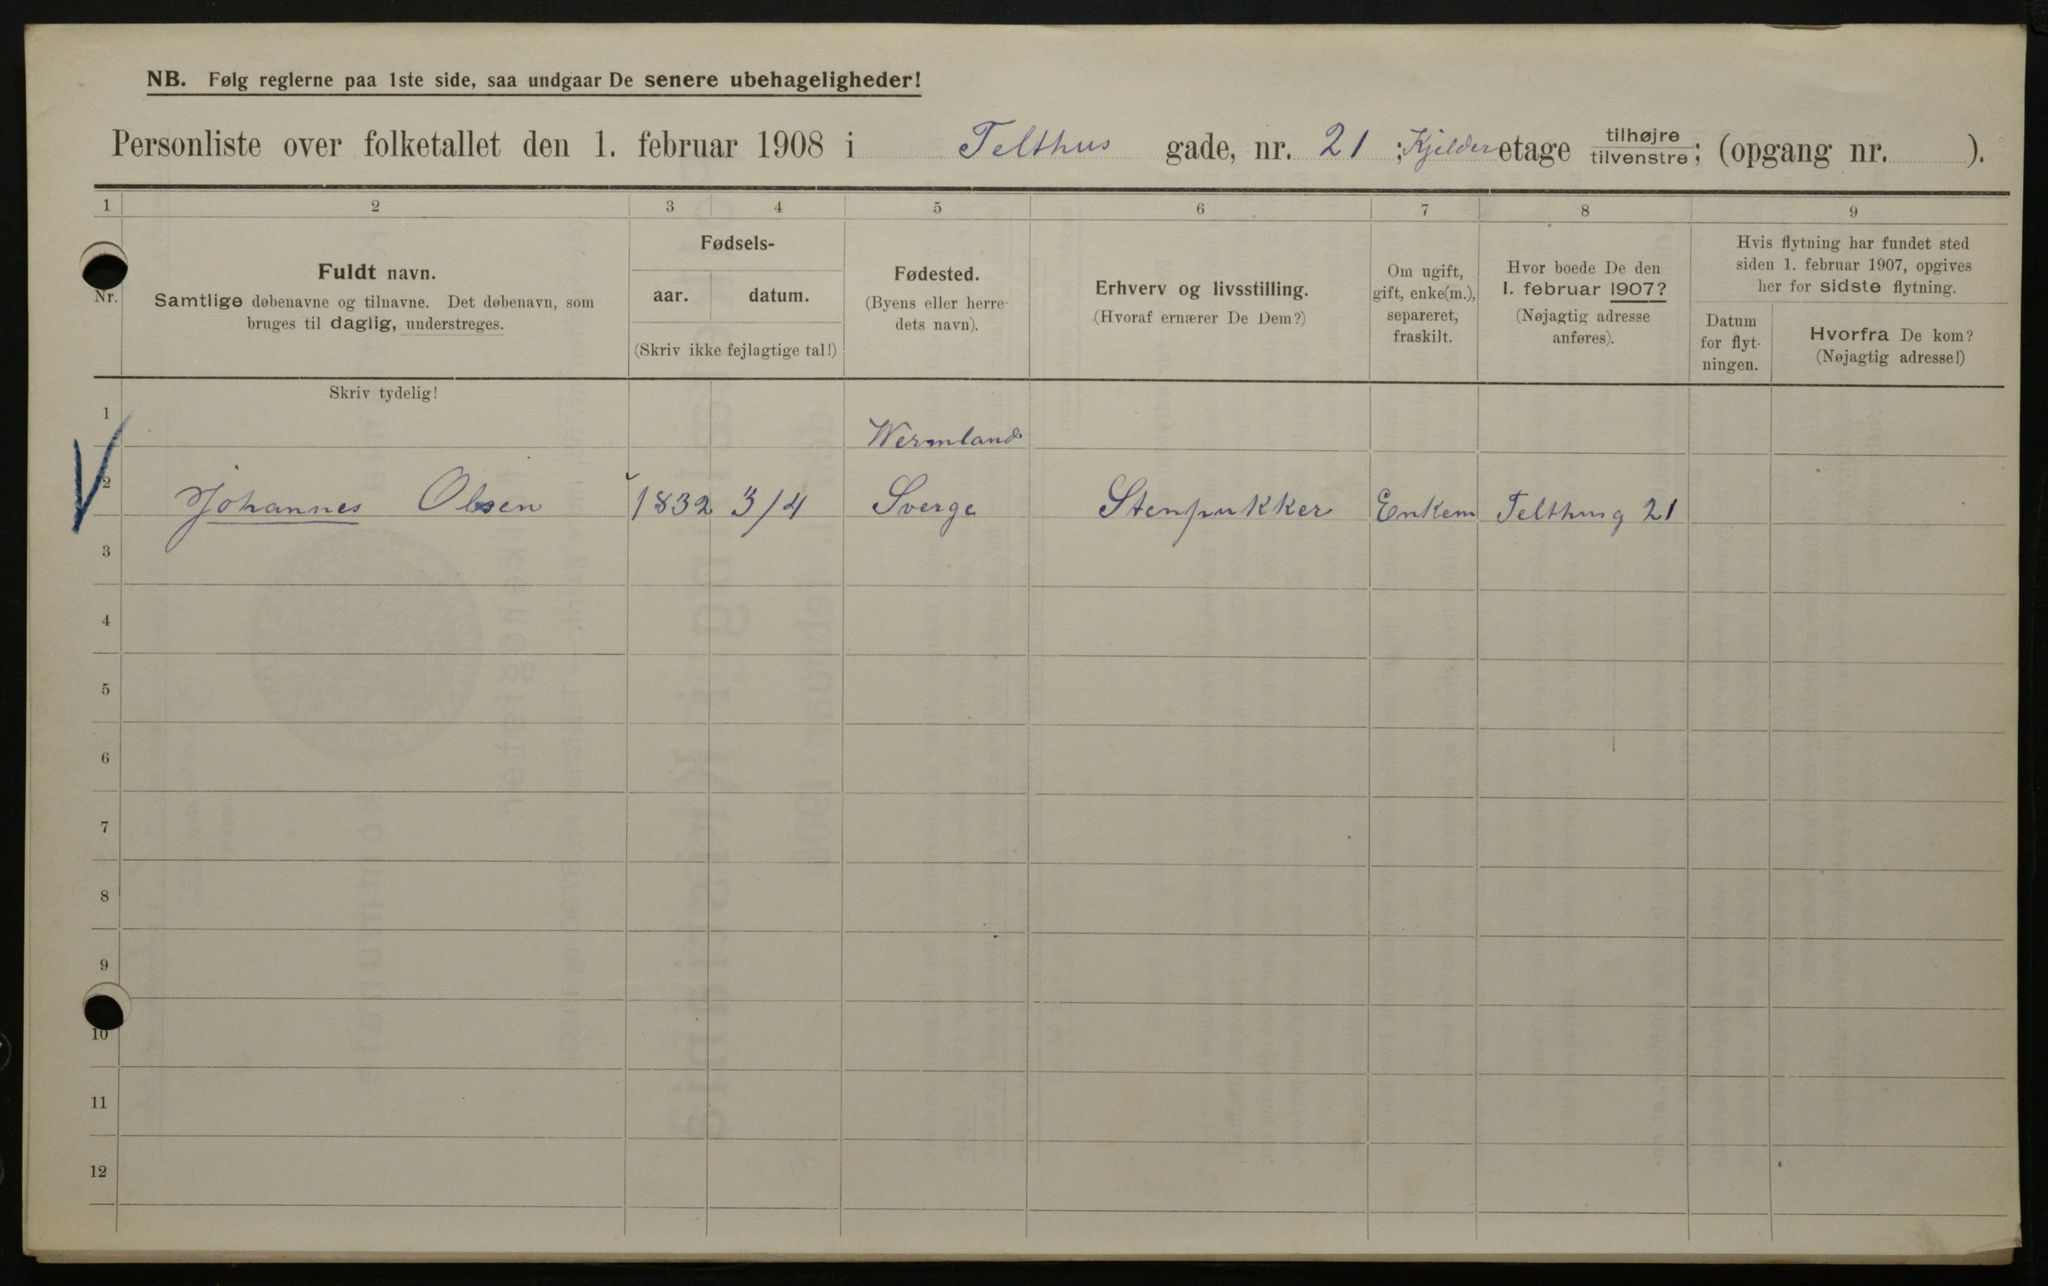 NB. Følg reglerne paa 1ste side, saa undgaar De senere ubehageligheder!
Personliste over folketallet den 1. februar 1908 i Telthus gade, nr. 21 ; Kjelder etage tilhøjre tilvenstre; (opgang nr. ).
1 2 3 4 5 6 7 8 9
Nr.
Fuldt navn.
Samtlige døbenavne og tilnavne. Det døbenavn, som
bruges til daglig, understreges.
Fødsels-
aar. datum.
(Skriv ikke fejlagtige tal!)
Fødested.
(Byens eller herre-
dets navn).
Erhverv og livsstilling.
(Hvoraf ernærer De Dem?)
Om ugift,
gift, enke(m.),
separeret,
fraskilt.
Hvor boede De den
1. februar 1907?
(Nøjagtig adresse
anføres).
Hvis flytning har fundet sted
siden 1. februar 1907, opgives
her for sidste flytning.
Datum
for flyt-
ningen.
Hvorfra De kom?
(Nøjagtig adresse!)
Skriv tydelig!
1
Wermland
2
Johannes Olsen 1832 3/4 Sverge Stenpukker Enkem Telthusg 21
3
4
5
6
7
8
9
10
11
12